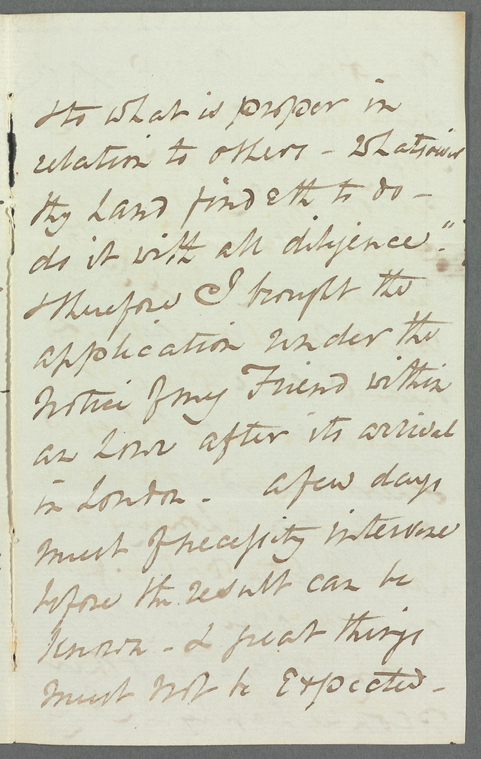 & to what is proper in
relation to others - Whatsoever
thy hand findeth to do -
do it with all diligence."
& therefore I brought the
application under the
notice of my Friend within
an hour after its arrival
in London - a few days
must of necessity intervene
before the result can be
known - & great things
must not be Expected -